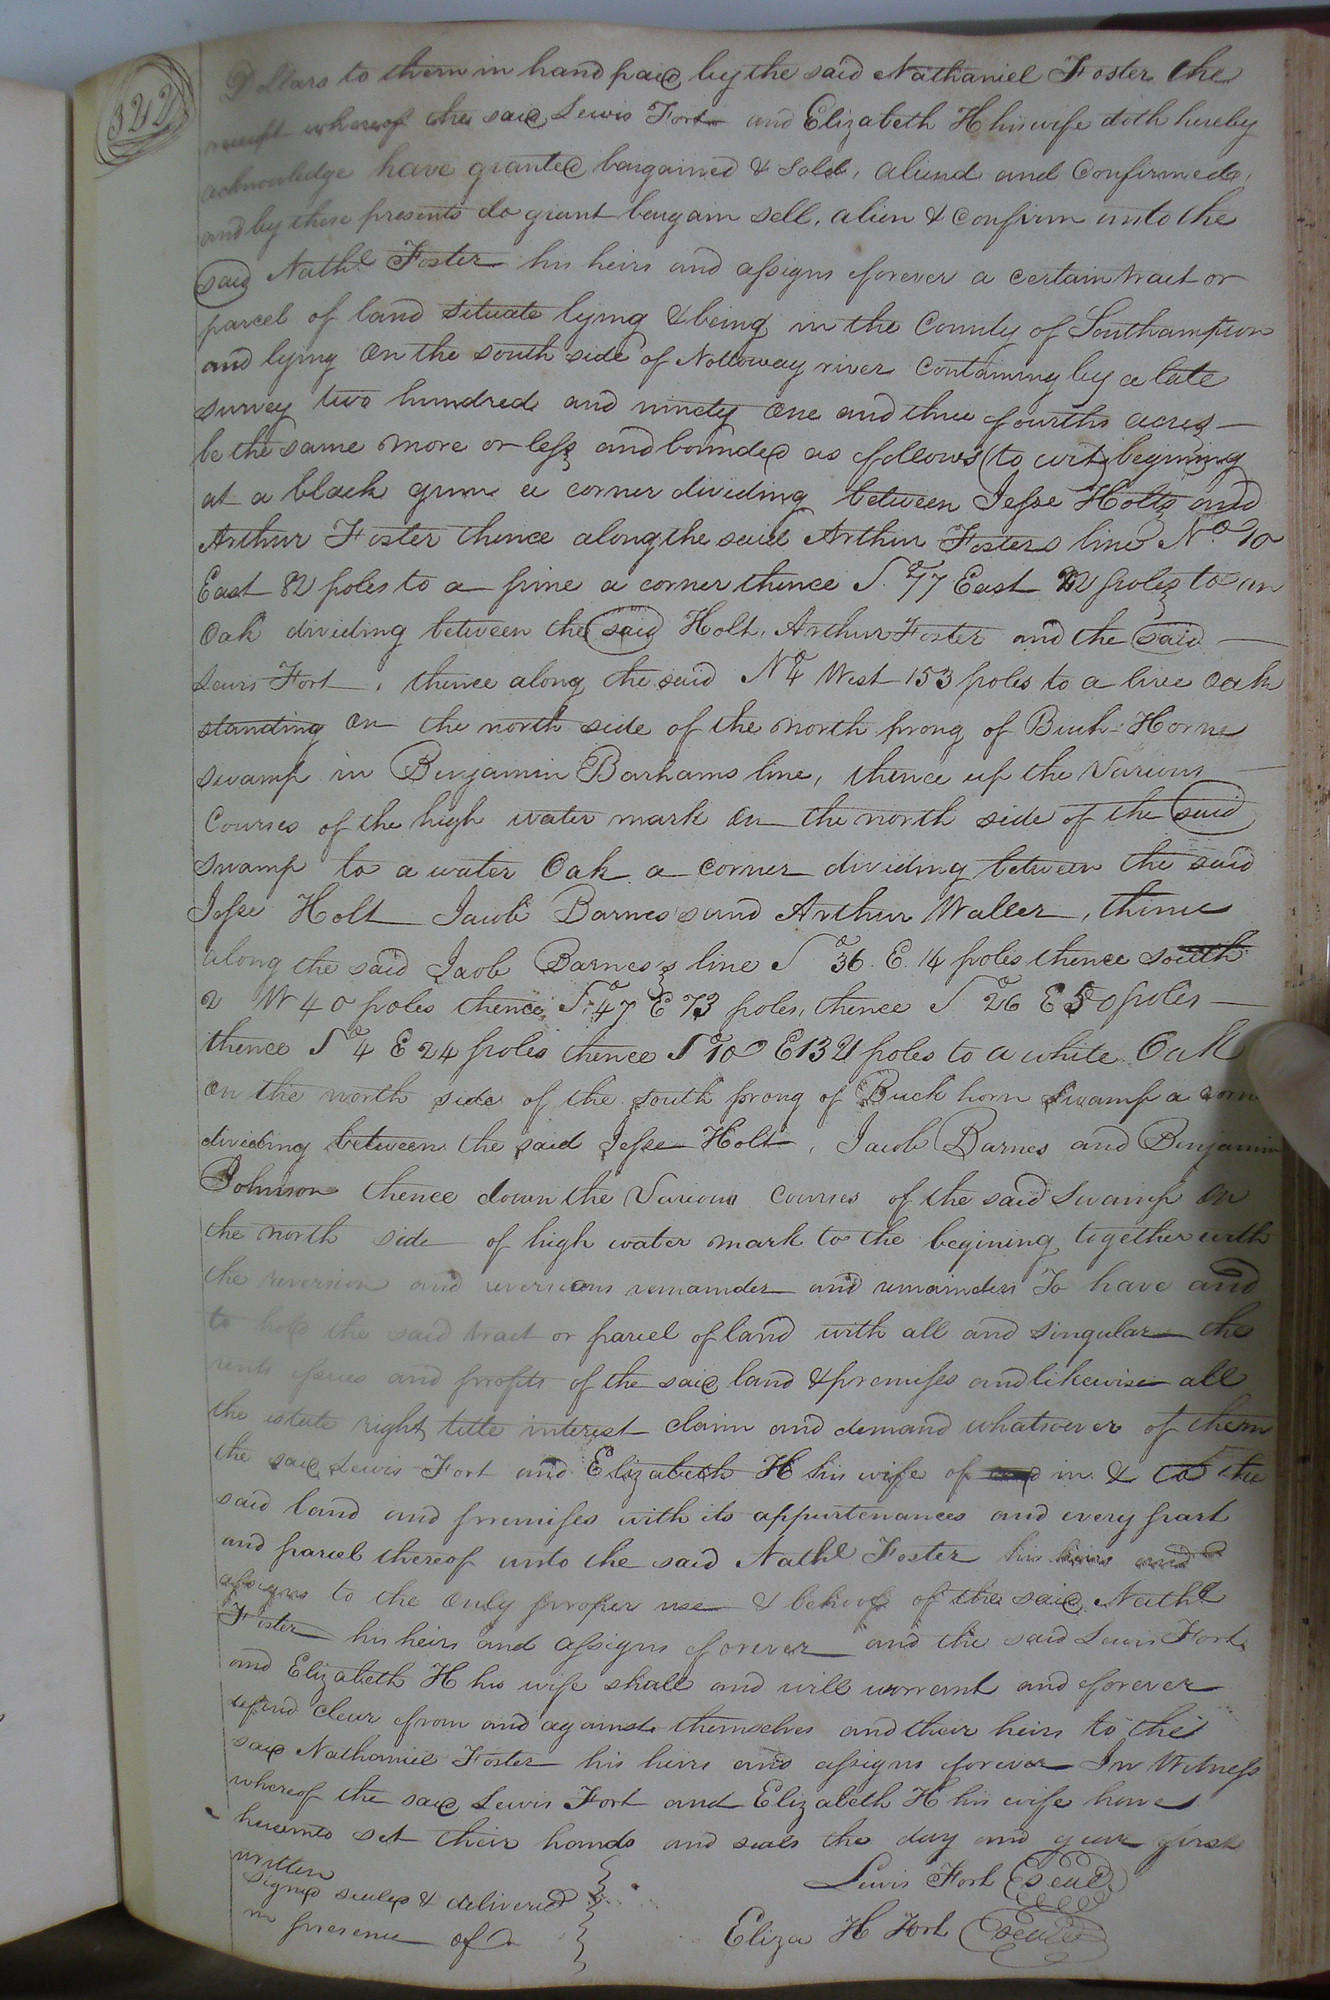 322
Dollars to them in hand paid by the said Nathaniel Foster the
receipt whereof the said Lewis Fort and Elizabeth H his wife doth hereby
acknowledge have granted bargained & sold, aliend and Confirmed,
and by these presents do grant bargain sell, alien & confirm unto the
said Nathl Foster his heirs and assigns forever a certain tract or
parcel of land situate lying & being in the County of Southampton
and lying on the south side of Nottoway river containing by a late
survey two hundred and ninety one and three fourths acres
be the same more or less and bounded as follows (to wit, begining
at a black gum a corner dividing between Jesse Holts and
Arthur Foster thence along the said Arthur Fosters line No. 10
East 82 poles to a pine a corner thence S. 77 East 22 poles to an
Oak dividing between the said Holt, Arthur Foster and the said
Lewis Fort, thence along the said No 4 West 153 poles to a live oak
standing on the north side of the north prong of Buck-Horne
swamp in Benjamin Barhams line, thence up the Various
Courses of the high water mark on the north side of the said
swamp to a water Oak a corner dividing between the said
Jesse Holt Jacob Barnes's and Arthur Waller, thence
along the said Jacob Barnes's line So 36. E. 14 poles thence south
2 W 40 poles thence So 47 E 73 poles, thence So 26 E 50 poles
thence So 4 E 24 poles thence So 10 E 132 poles to a white Oak
on the north side of the south prong of Buck horn swamp a corn
dividing between the said Jesse Holt, Jacob Barnes and Benjamin
Johnson thence down the Various courses of the said Swamp on
the north side of high water mark to the begining together with
the reversion and reversions remainder and remainders To have and
to hold the said tract or parcel of land with all and singular the
rents issues and profits of the said land & premises and likewise all
the estate right title interest claim and demand whatsoever of them
the said Lewis Fort and Elizabeth H his wife of in & to the
said land and premises with its appurtenances and every part
and parcel thereof unto the said Nathl Foster his heirs and
assigns to the only proper use & behoof of the said Nathl
Foster his heirs and assigns forever and the said Lewis Fort
and Elizabeth H his wife shall and will warrant and forever
defend clear from and against themselves and their heirs to the
said Nathaniel Foster his heirs and assigns forever In Witness
whereof the said Lewis Fort and Elizabeth H his wife have
hereunto set their hands and seals the day and year first
written
Signed sealed & delivered
in presence of
Lewis Fort (seal)
Eliza H Fort (seal)